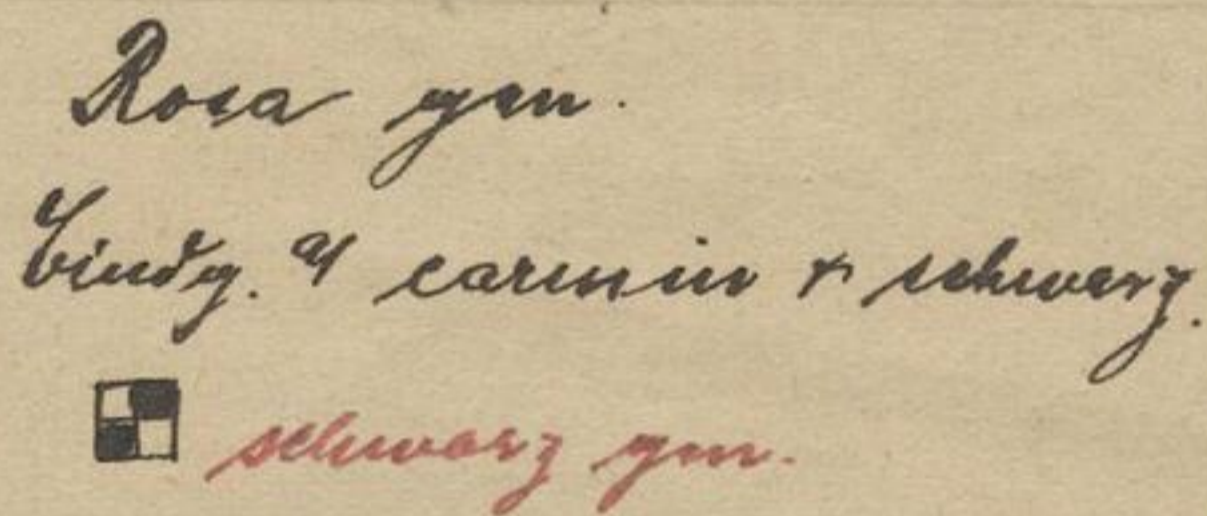 Rosa gem.
Bindg. a/ carmin & schwarz.
schwarz gem.